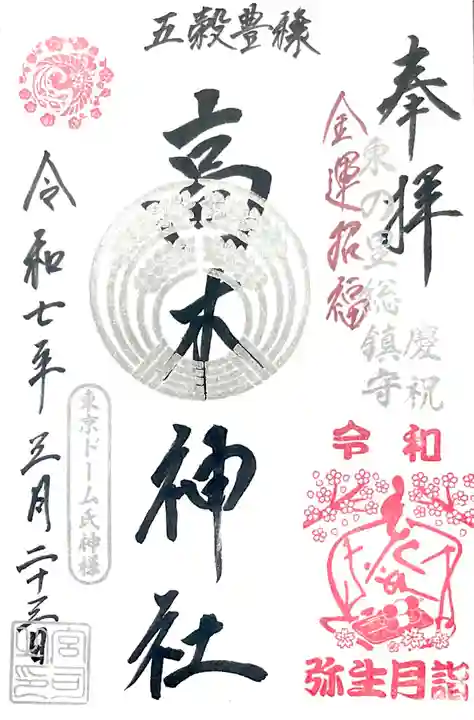 奉拝
慶祝
東の里総鎮守
金運招福
五穀豊穣
高木神社
令和七年三月二十三日
東京ドーム氏神様
令和
弥生月詣